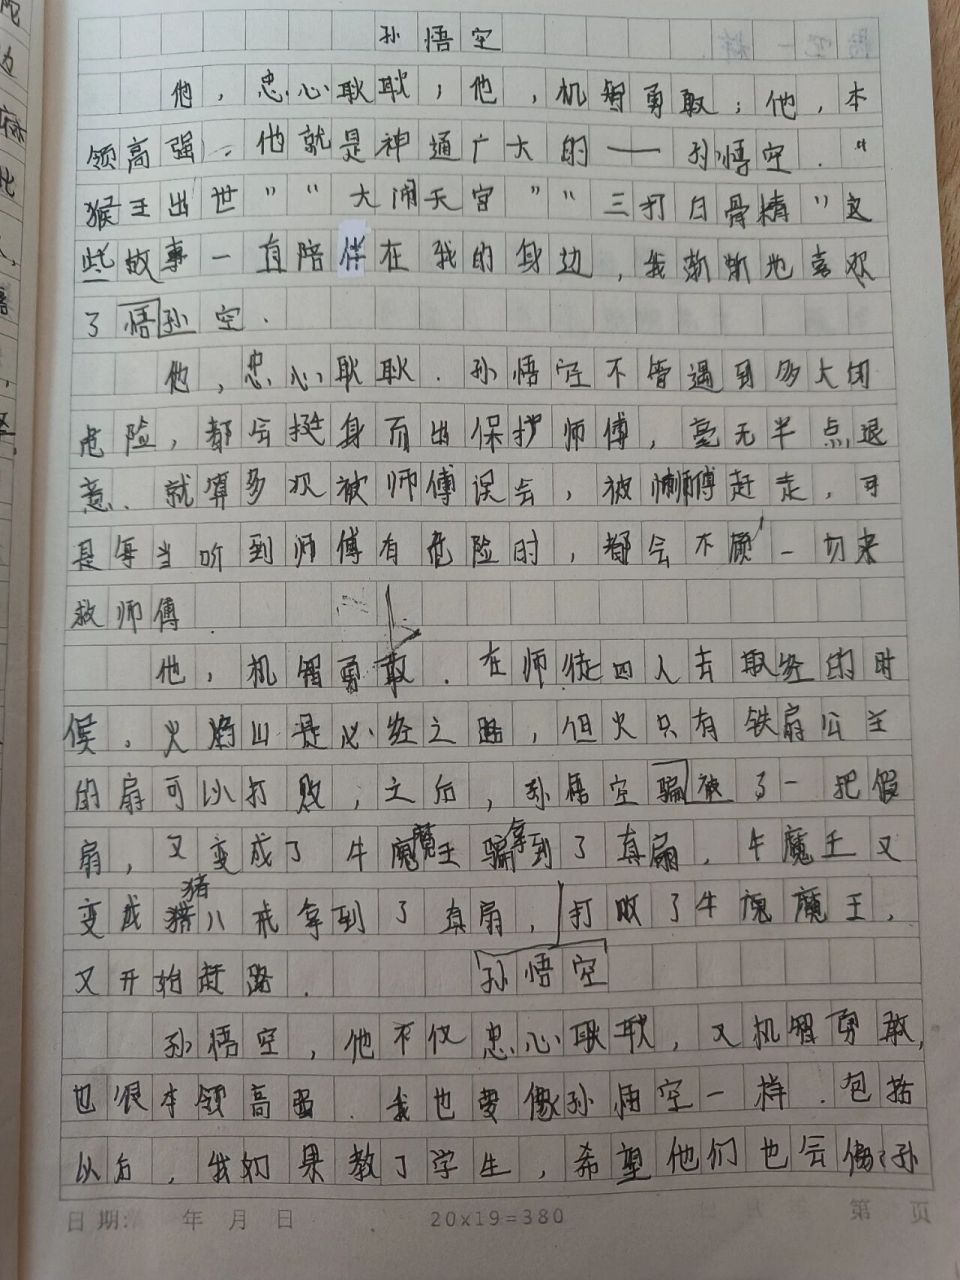 孙悟空
他，忠心耿耿；他，机智勇敢；他，本
领高强，他就是神通广大的——孙悟空．“
猴王出世”“大闹天宫”“三打白骨精”这
些故事一直陪伴在我的身边，我渐渐地喜欢
了悟孙空．
他，忠心耿耿．孙悟空不管遇到多大的
危险，都会挺身而出保护师傅，毫无半点退
意．就算多次被师傅误会，被师傅赶走，可
是每当听到师傅有危险时，都会不顾一切来
救师傅
他，机智勇敢．在师徒四人去取经的时
侯，火焰山是必经之路，但火只有铁扇公主
的扇可以打败，之后，孙悟空骗被了一把假
扇，又变成了牛魔王骗拿到了真扇，牛魔王又
变成猪八戒拿到了真扇，打败了牛魔王，
又开始赶路．孙悟空
孙悟空，他不仅忠心耿耿，又机智勇敢，
也很本领高强．我也要像孙悟空一样．包括
以后，我如果教了学生，希望他们也会像孙
日期： 年 月 日 20x19=380 第 页